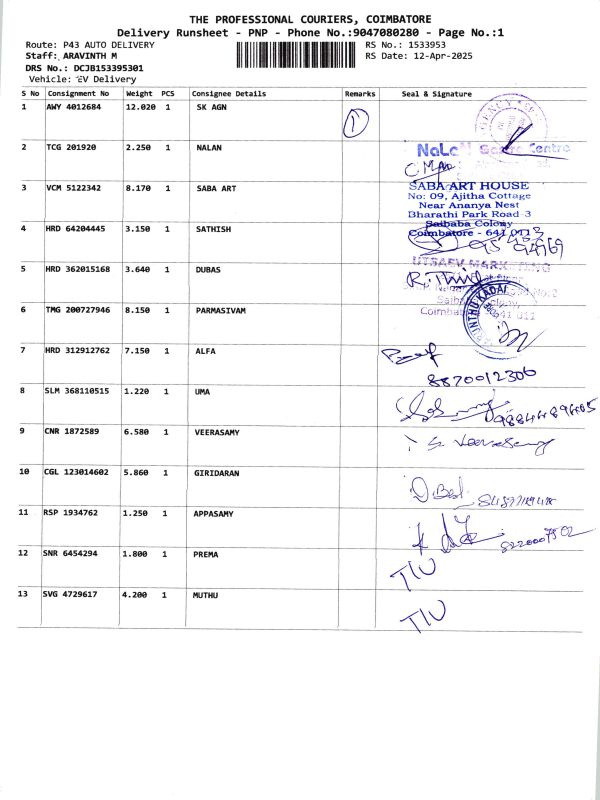 THE PROFESSIONAL COURIERS, COIMBATORE
Delivery Runsheet - PNP - Phone No.:9047080280 - Page No.:1
Route: P43 AUTO DELIVERY RS No.: 1533953
Staff: ARAVINTH M RS Date: 12-Apr-2025
DRS No.: DCJB153395301
Vehicle: EV Delivery
S No Consignment No Weight PCS Consignee Details Remarks Seal & Signature
1 AWY 4012684 12.020 1 SK AGN 1
2 TCG 201920 2.250 1 NALAN
Centre
3 VCM 5122342 8.170 1 SABA ART
SABA ART HOUSE
No: 09, Ajitha Cottage
Near Ananya Nest
Bharathi Park Road-3
Saibaba Colony
Coimbatore - 641 013
4 HRD 64204445 3.150 1 SATHISH
5 HRD 362015168 3.640 1 DUBAS
UTSAEV MARKETING
6 TMG 200727946 8.150 1 PARMASIVAM
7 HRD 312912762 7.150 1 ALFA
8870012306
8 SLM 368110515 1.220 1 UMA
9 CNR 1872589 6.580 1 VEERASAMY
10 CGL 123014602 5.860 1 GIRIDARAN
11 RSP 1934762 1.250 1 APPASAMY
8220007502
12 SNR 6454294 1.800 1 PREMA TIU
13 SVG 4729617 4.200 1 MUTHU TIU